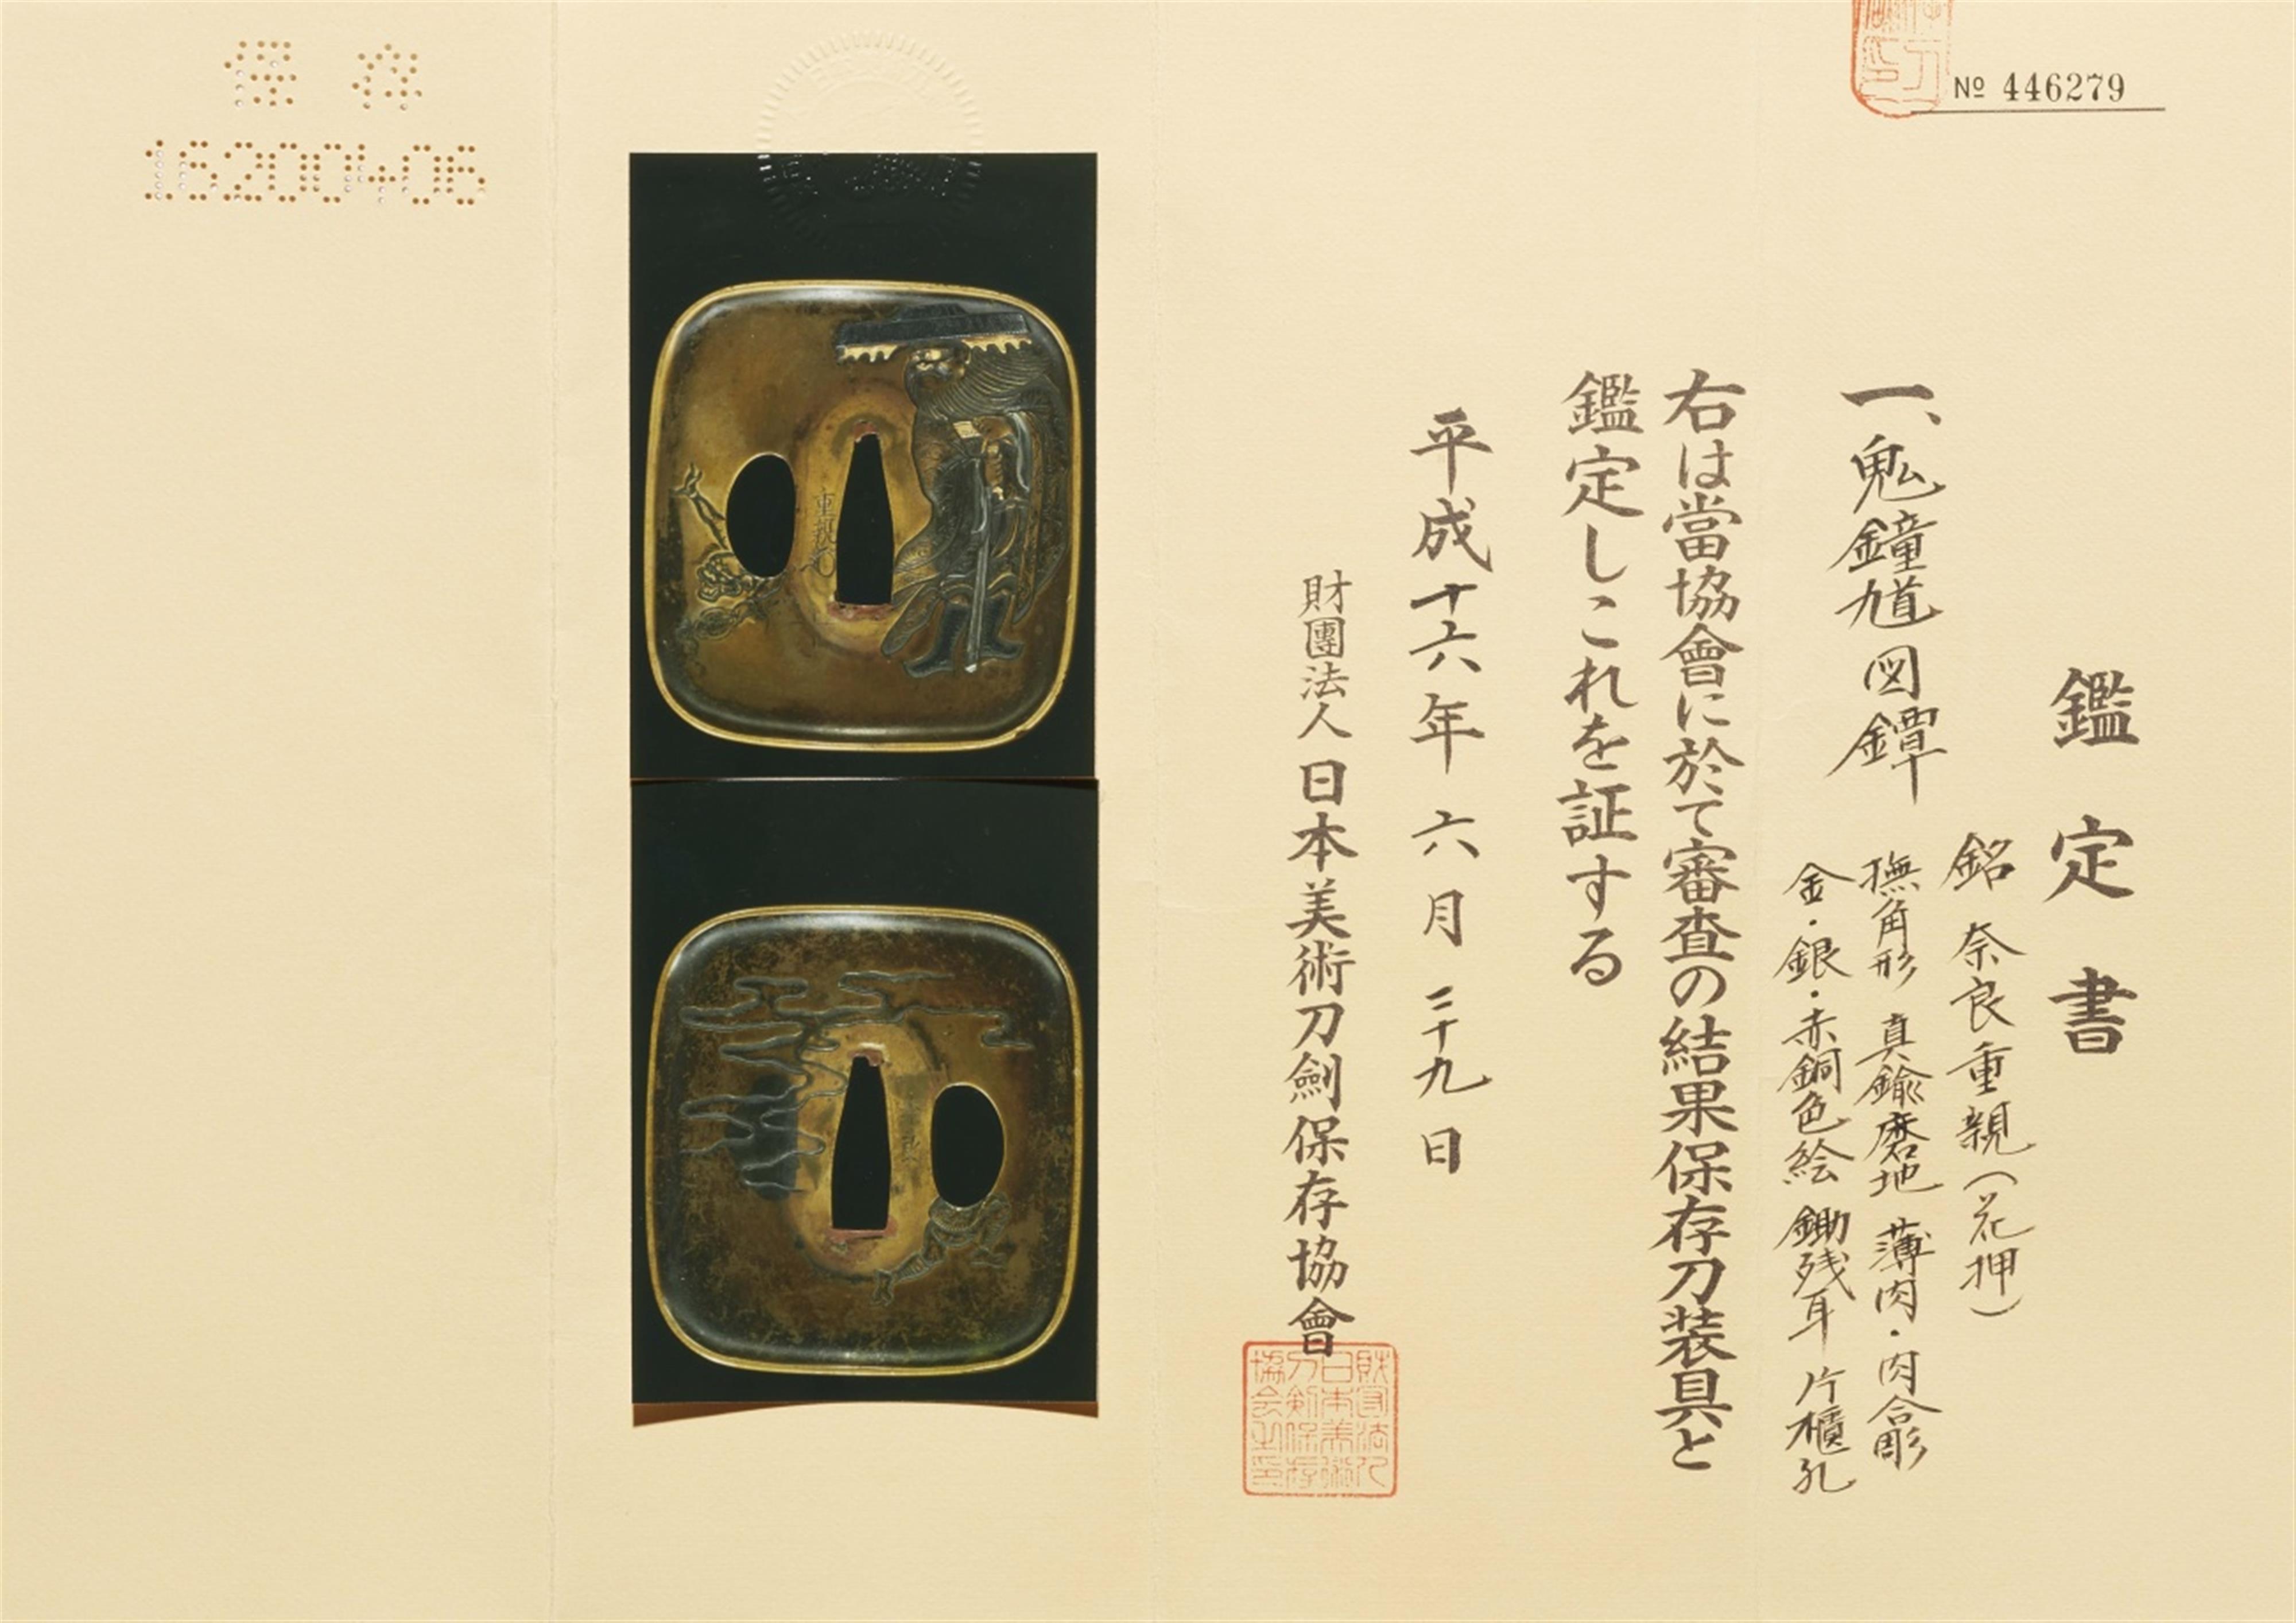 № 446279
鑑定書
銘 奈良重親(花押)
一、鬼鐘馗図鐔
撫角形 真鍮磨地 薄肉・肉合彫
金・銀・赤銅色絵 鋤残耳 片櫃孔
右は當協會に於て審査の結果保存刀装具と
鑑定しこれを証する
平成十六年 六月 二十九日
財團法人 日本美術刀劍保存協會
財団法人
日本美術
刀剣保存
協会之印
保存
16200406
重親